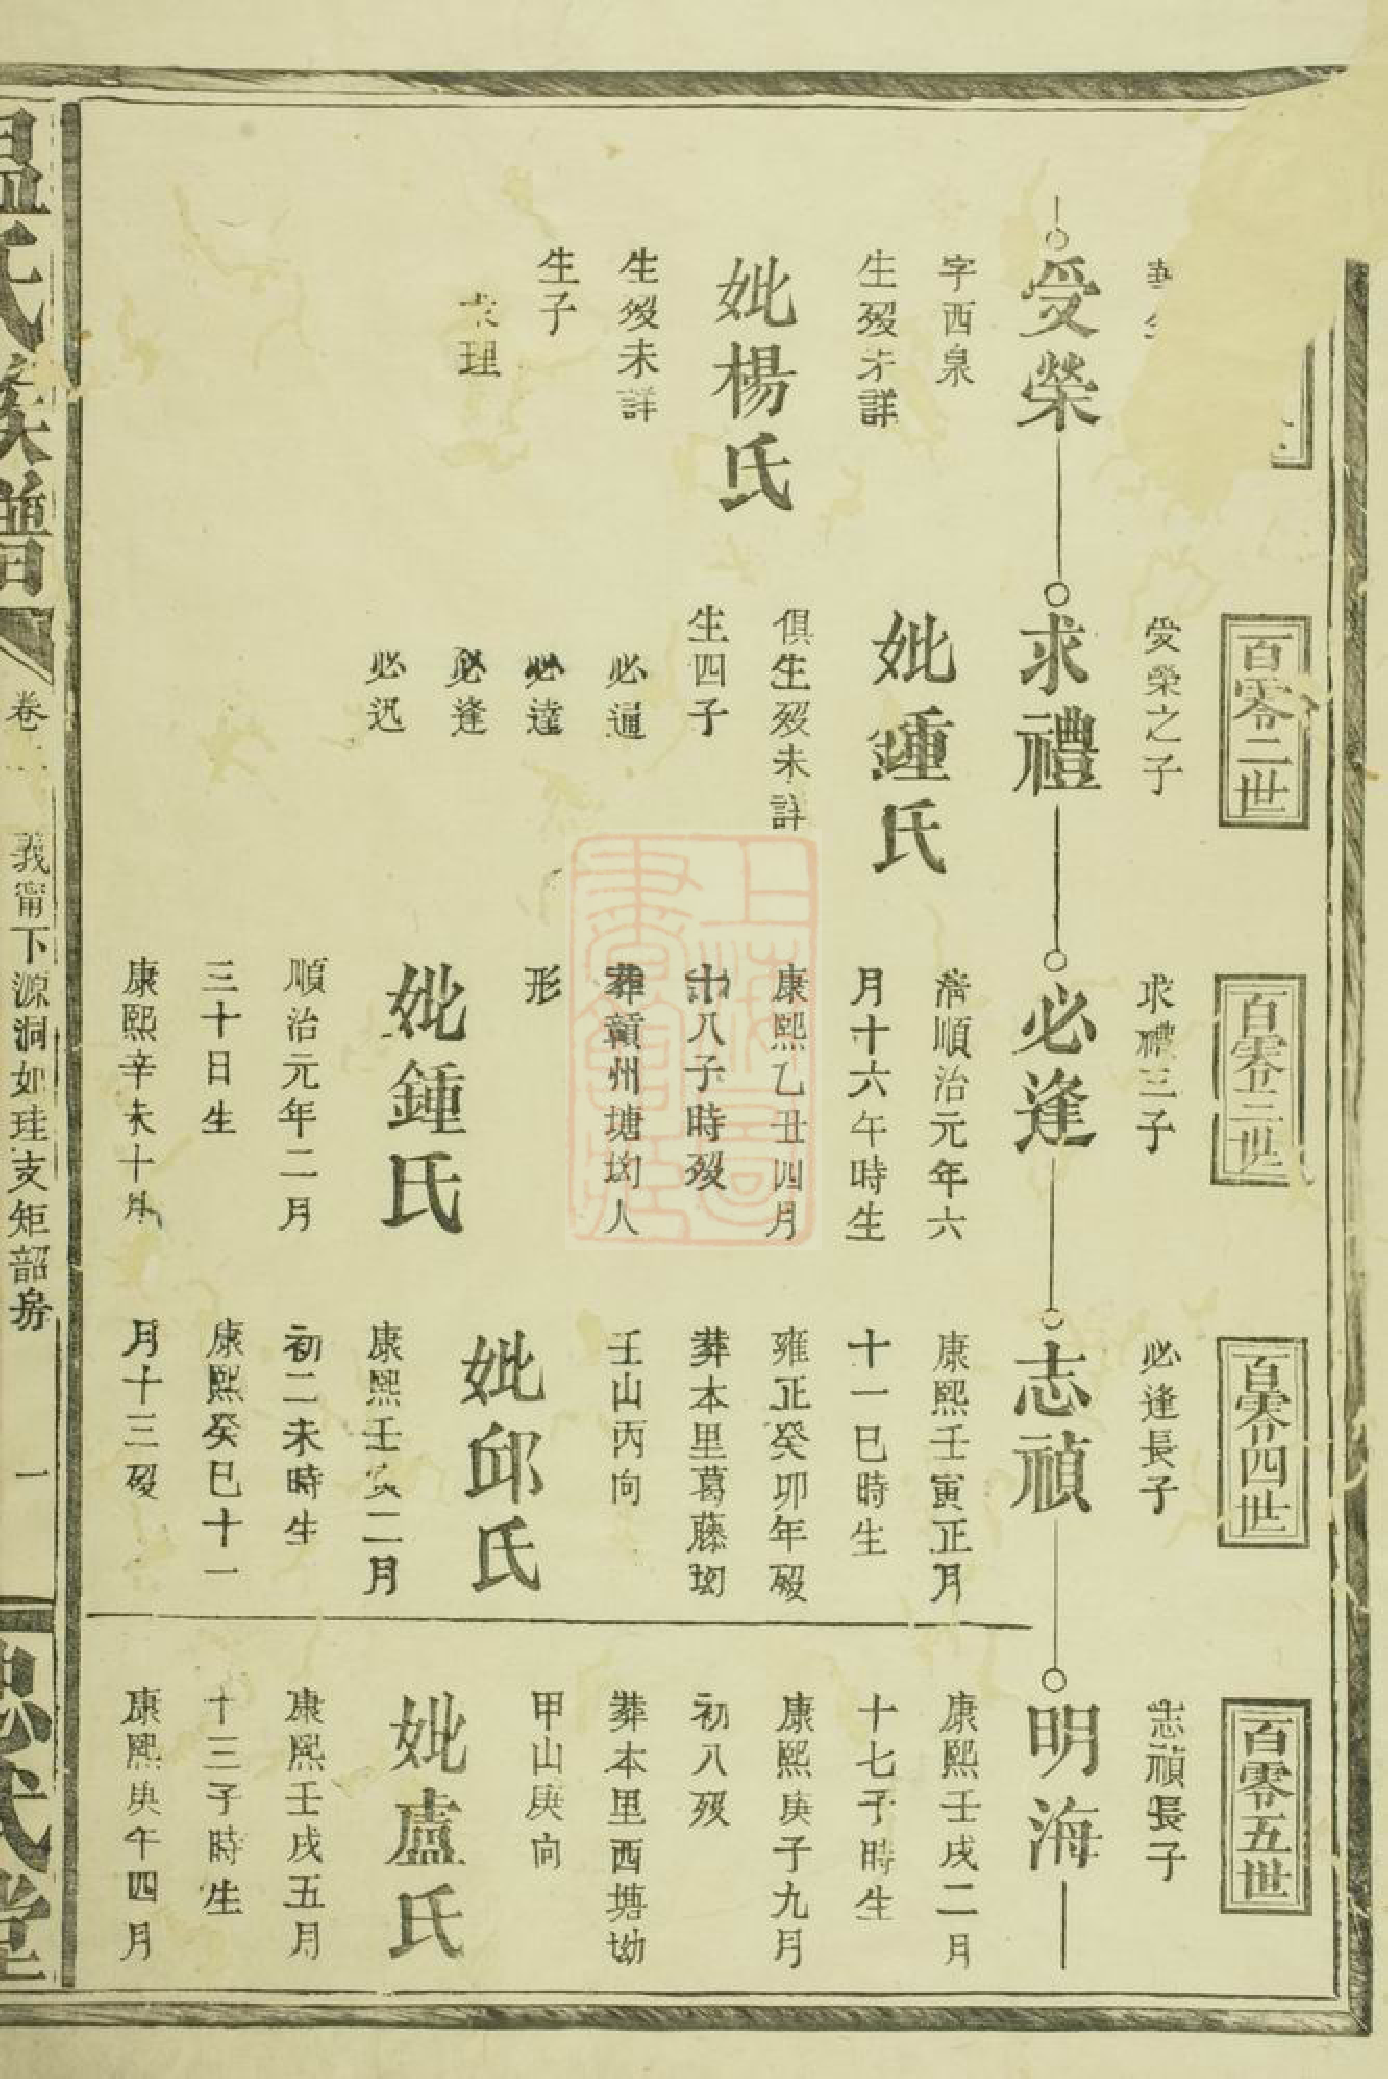 受榮
字西泉
生歿未詳
妣楊氏
生歿未詳
生子
理
百零二世
受榮之子
求禮
妣鍾氏
俱生歿未詳
生四子
必逼
必達
必逢
必迅
百零三世
求禮三子
必逢
清順治元年六
月十六午時生
康熙乙丑四月
廿八子時歿
葬贛州塘坳人
形
妣鍾氏
順治元年二月
三十日生
康熙辛未十月
百零四世
必逢長子
志禎
康熙壬寅正月
十一巳時生
雍正癸卯年歿
葬本里葛藤坳
壬山丙向
妣邱氏
康熙壬寅二月
初二未時生
康熙癸巳十一
月十三歿
百零五世
志禎長子
明海
康熙壬戌二月
十七子時生
康熙庚子九月
初八歿
葬本里西塘坳
甲山庚向
妣盧氏
康熙壬戌五月
十三子時生
康熙庚午四月
溫氏族譜
卷
義甯下源洞如珪支矩韶房
一
忠武堂
上海圖書館藏